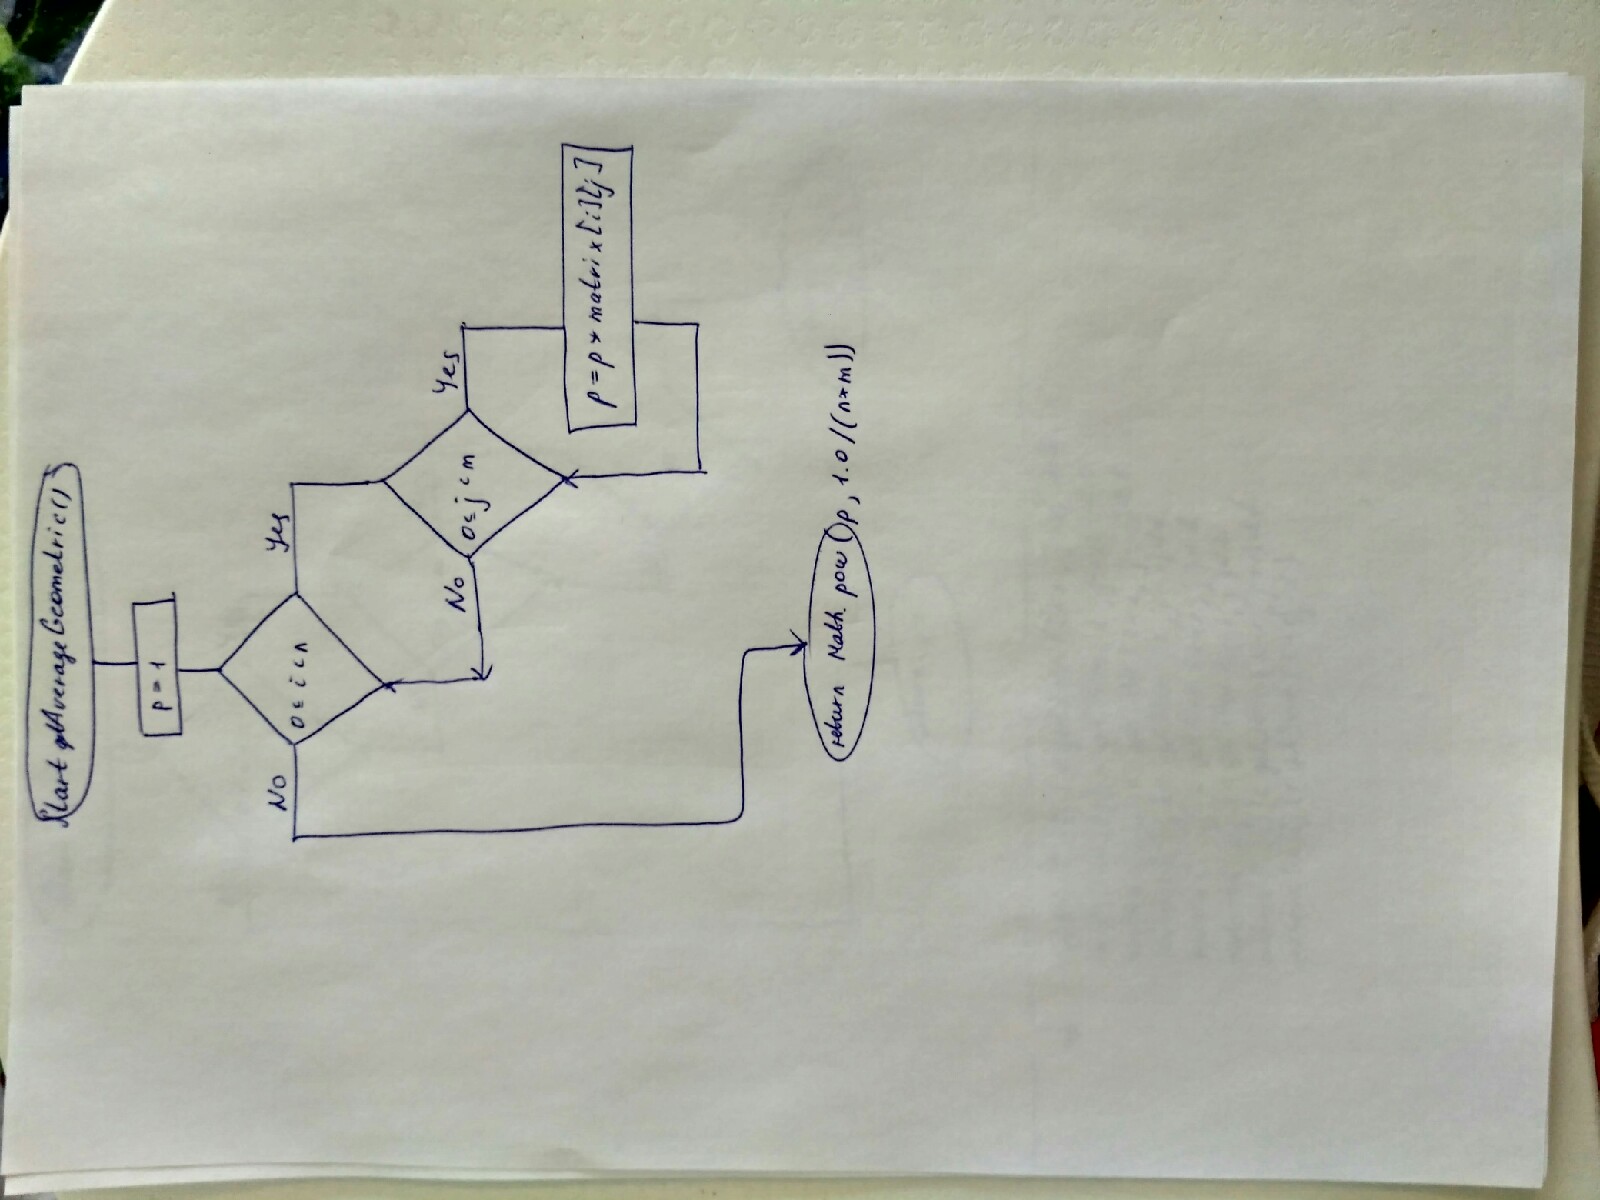 Start getAverageGeometric()
p = 1
0 ≤ i < n
Yes
No
0 ≤ j < m
Yes
No
p = p * matrix[i][j]
return Math.pow(p, 1.0/(n*m))